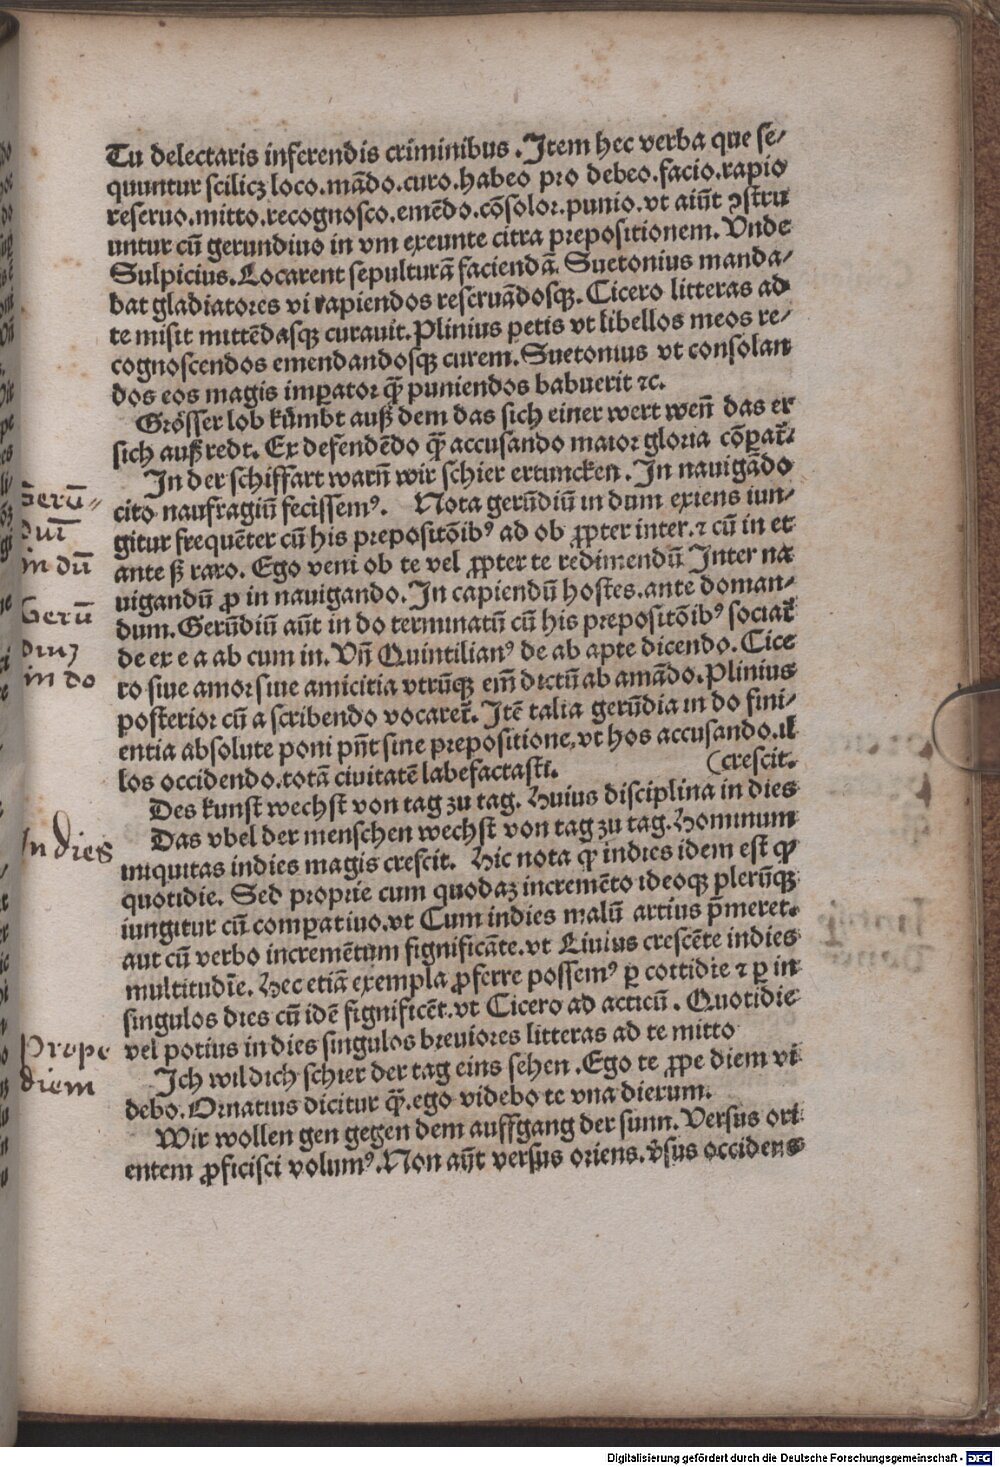 Tu delectaris inferendis criminibus . Item hec verba que se⸗
quuntur scilicꝫ loco.mãdo.curo.habeo pro debeo.facio.rapio
reseruo.mitto.recognosco.emẽdo.cõsolor.punio.vt aiũt ꝯstru
untur cũ gerundiuo in vm exeunte citra prepositionem. Vnde
Sulpicius. Locarent sepulturã faciendã. Suetonius manda⸗
bat gladiatores vi rapiendos reseruãdosqꝫ. Cicero litteras ad
te misit mittẽdasqꝫ curauit. Plinius petis vt libellos meos re⸗
cognoscendos emendandosqꝫ curem. Suetonius vt consolan
dos eos magis imꝑator q̃ꝫ puniendos habuerit ⁊c.
Grösser lob kümbt auß dem das sich einer wert weñ das er
sich auß redt. Ex defendẽdo q̃ꝫ accusando maior gloria cõꝑat̃.
In der schiffart warñ wir schier ertuncken . In nauigãdo
cito naufragiũ fecissemꝰ. Nota gerũdiũ in dum exiens iun⸗
gitur frequẽter cũ his prepositõibꝰ ad ob ꝓpter inter.⁊ cũ in et
ante ß raro. Ego veni ob te vel ꝓpter te redimendũ Inter na
uigandũ ꝓ in nauigando. In capiendũ hostes.ante doman⸗
dum. Gerũdiũ aũt in do terminatũ cũ his prepositõibꝰ sociat̃
de ex e a ab cum in. Vñ Quintilianꝰ de ab apte dicendo. Cice
ro siue amor siue amicitia vtrũqꝫ em̃ dictũ ab amãdo. Plinius
posterior cũ a scribendo vocaret̃. Itẽ talia gerũdia in do fini⸗
entia absolute poni pñt sine prepositione.vt hos accusando.il
los occidendo.totã ciuitatẽ labefactasti. (crescit.
Des kunst wechst von tag zu tag. Huius disciplina in dies
Das vbel der menschen wechst von tag zu tag. Hominum
iniquitas indies magis crescit. Hic nota ꝙ indies idem est ꝙ
quotidie. Sed proprie cum quodaꝫ incremẽto ideoqꝫ plerũqꝫ
iungitur cũ comꝑatiuo.vt Cum indies malũ artius p̃meret.
aut cũ verbo incremẽtum significãte.vt Liuius crescẽte indies
multitudĩe. Hec etiã exempla ꝓferre possemꝰ ꝑ cottidie ⁊ ꝑ in
singulos dies cũ idẽ significẽt.vt Cicero ad acticũ . Quotidie
vel potius in dies singulos breuiores litteras ad te mitto
Ich wil dich schier der tag eins sehen . Ego te ꝓpe diem vi
debo. Ornatius dicitur q̃ꝫ.ego videbo te vna dierum.
Wir wollen gen gegen dem auffgang der sunn. Versus ori
entem ꝓficisci volumꝰ. Non aũt versus oriens.v̓sus occidens
Gerũ⸗
duĩ
in dũ
Gerũ
diuꝫ
in do
In dies
Prope
diem
Digitalisierung gefördert durch die Deutsche Forschungsgemeinschaft - DFG